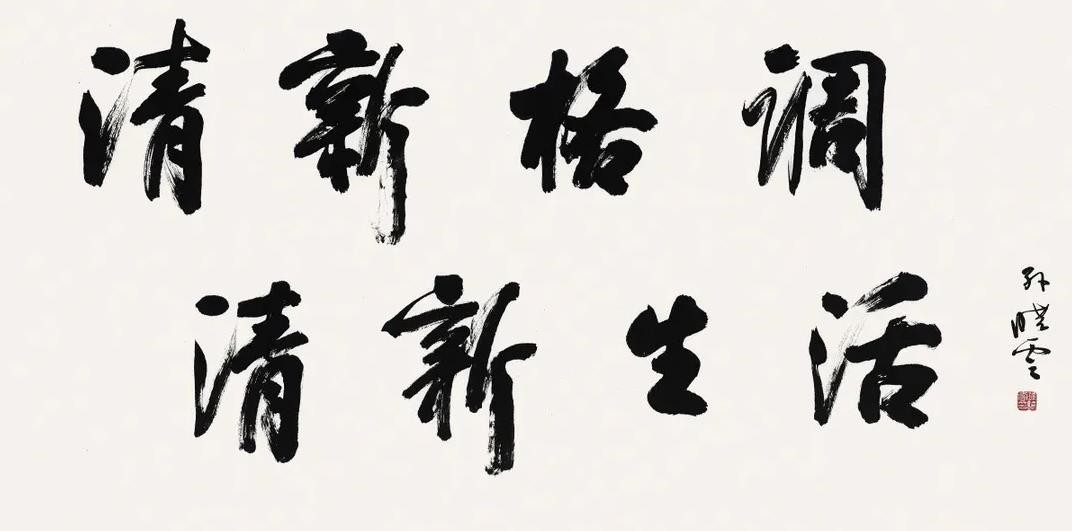 清新格调
清新生活
孙晓云